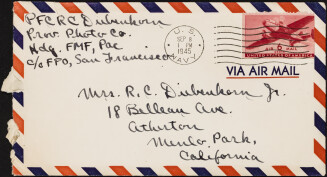 PFC R C Dubenhorn
Prov. Photo Co.
Hdq. FMF, Pac
c/o FPO, San Francisco
U.S.
SEP 6
1 PM
1945
NAVY
AIR 6¢ MAIL
UNITED STATES OF AMERICA
VIA AIR MAIL
Mrs. R. C. Dubenhorn Jr.
18 Belleau Ave.
Atherton
Menlo Park,
California